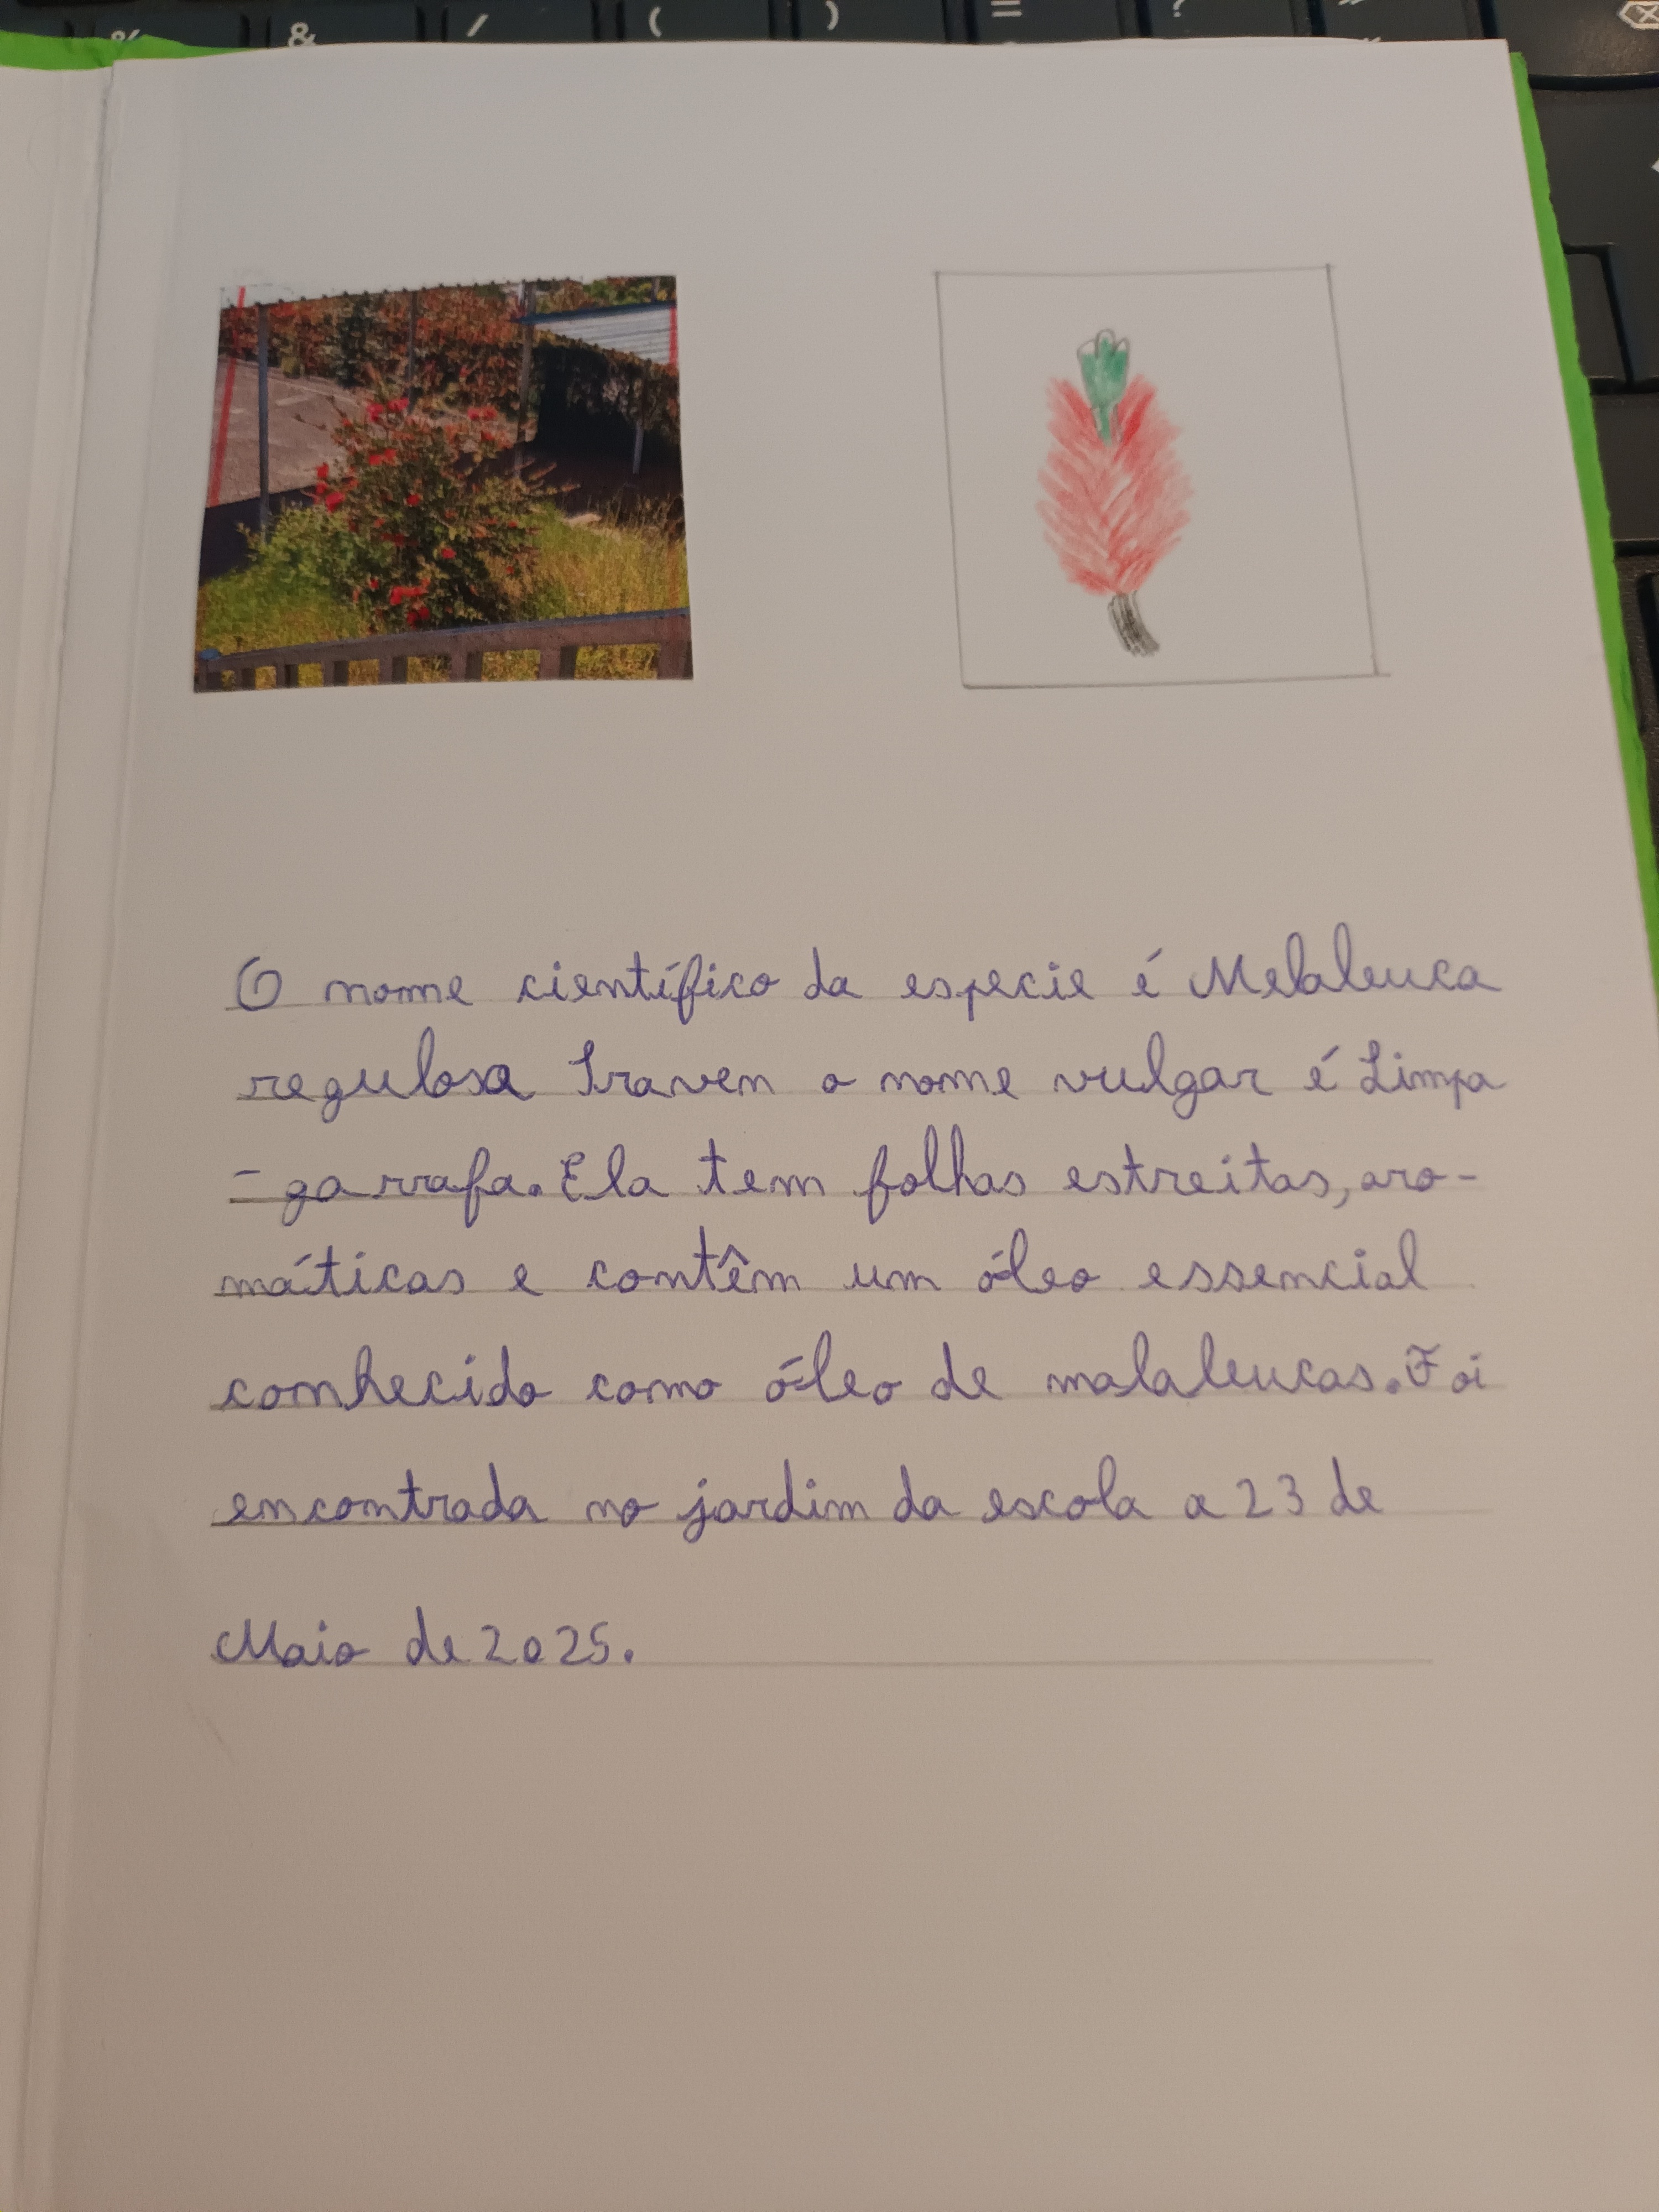 % & / ( ) = ?
O nome científico da especie é Melaleuca
regulosa Traven o nome vulgar é Limpa
-garrafa. Ela tem folhas estreitas, aro-
máticas e contêm um óleo essencial
conhecido como óleo de malaleucas. Foi
encontrada no jardim da escola a 23 de
Maio de 2025.